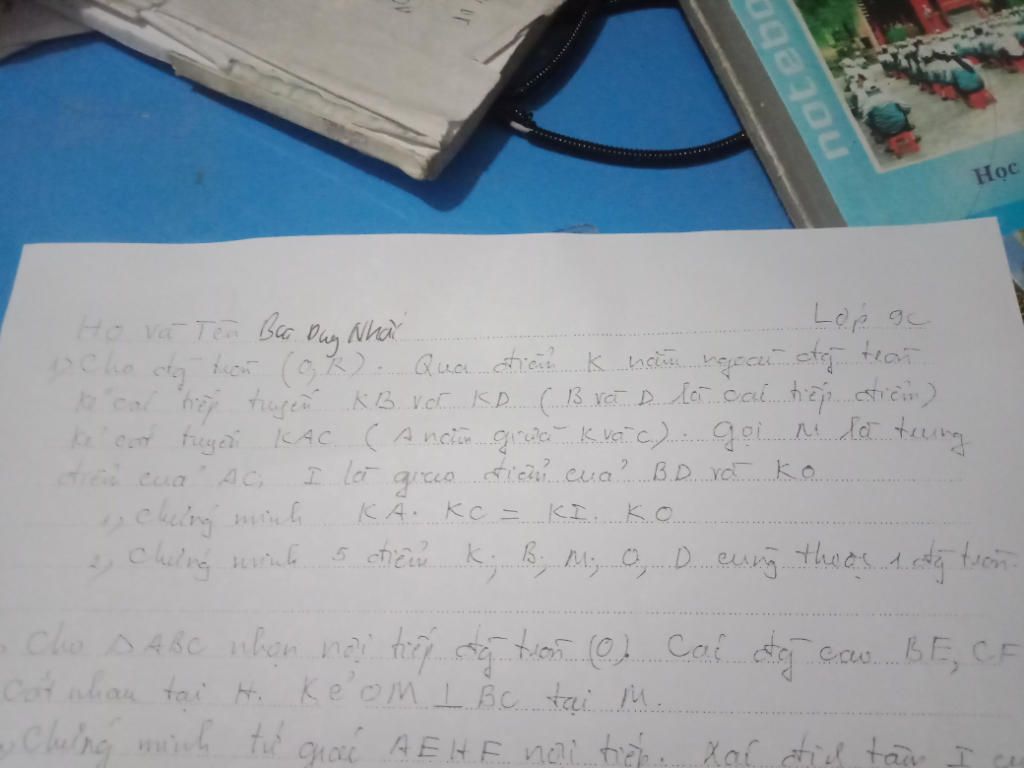 notebo
Học
Họ và Tên Bao Duy Nhất Lớp 9C
1) Cho đg tròn (O,R). Qua điểm K nằm ngoài đg tròn
kẻ các tiếp tuyến KB và KD (B và D là các tiếp điểm)
kẻ cát tuyến KAC (A nằm giữa K và C). Gọi M là trung
điểm của AC, I là giao điểm của BD và KO
1, Chứng minh KA. KC = KI. KO
2, Chứng minh 5 điểm K; B; M; O, D cùng thuộc 1 đg tròn.
Cho ΔABC nhọn nội tiếp đg tròn (O). Các đg cao BE, CF
Cắt nhau tại H. Kẻ OM ⊥ BC tại M.
Chứng minh tứ giác AEHF nội tiếp. Xác định tâm I